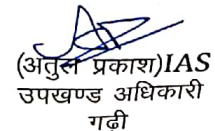 (अतुल प्रकाश)IAS
उपखण्ड अधिकारी
गढ़ी